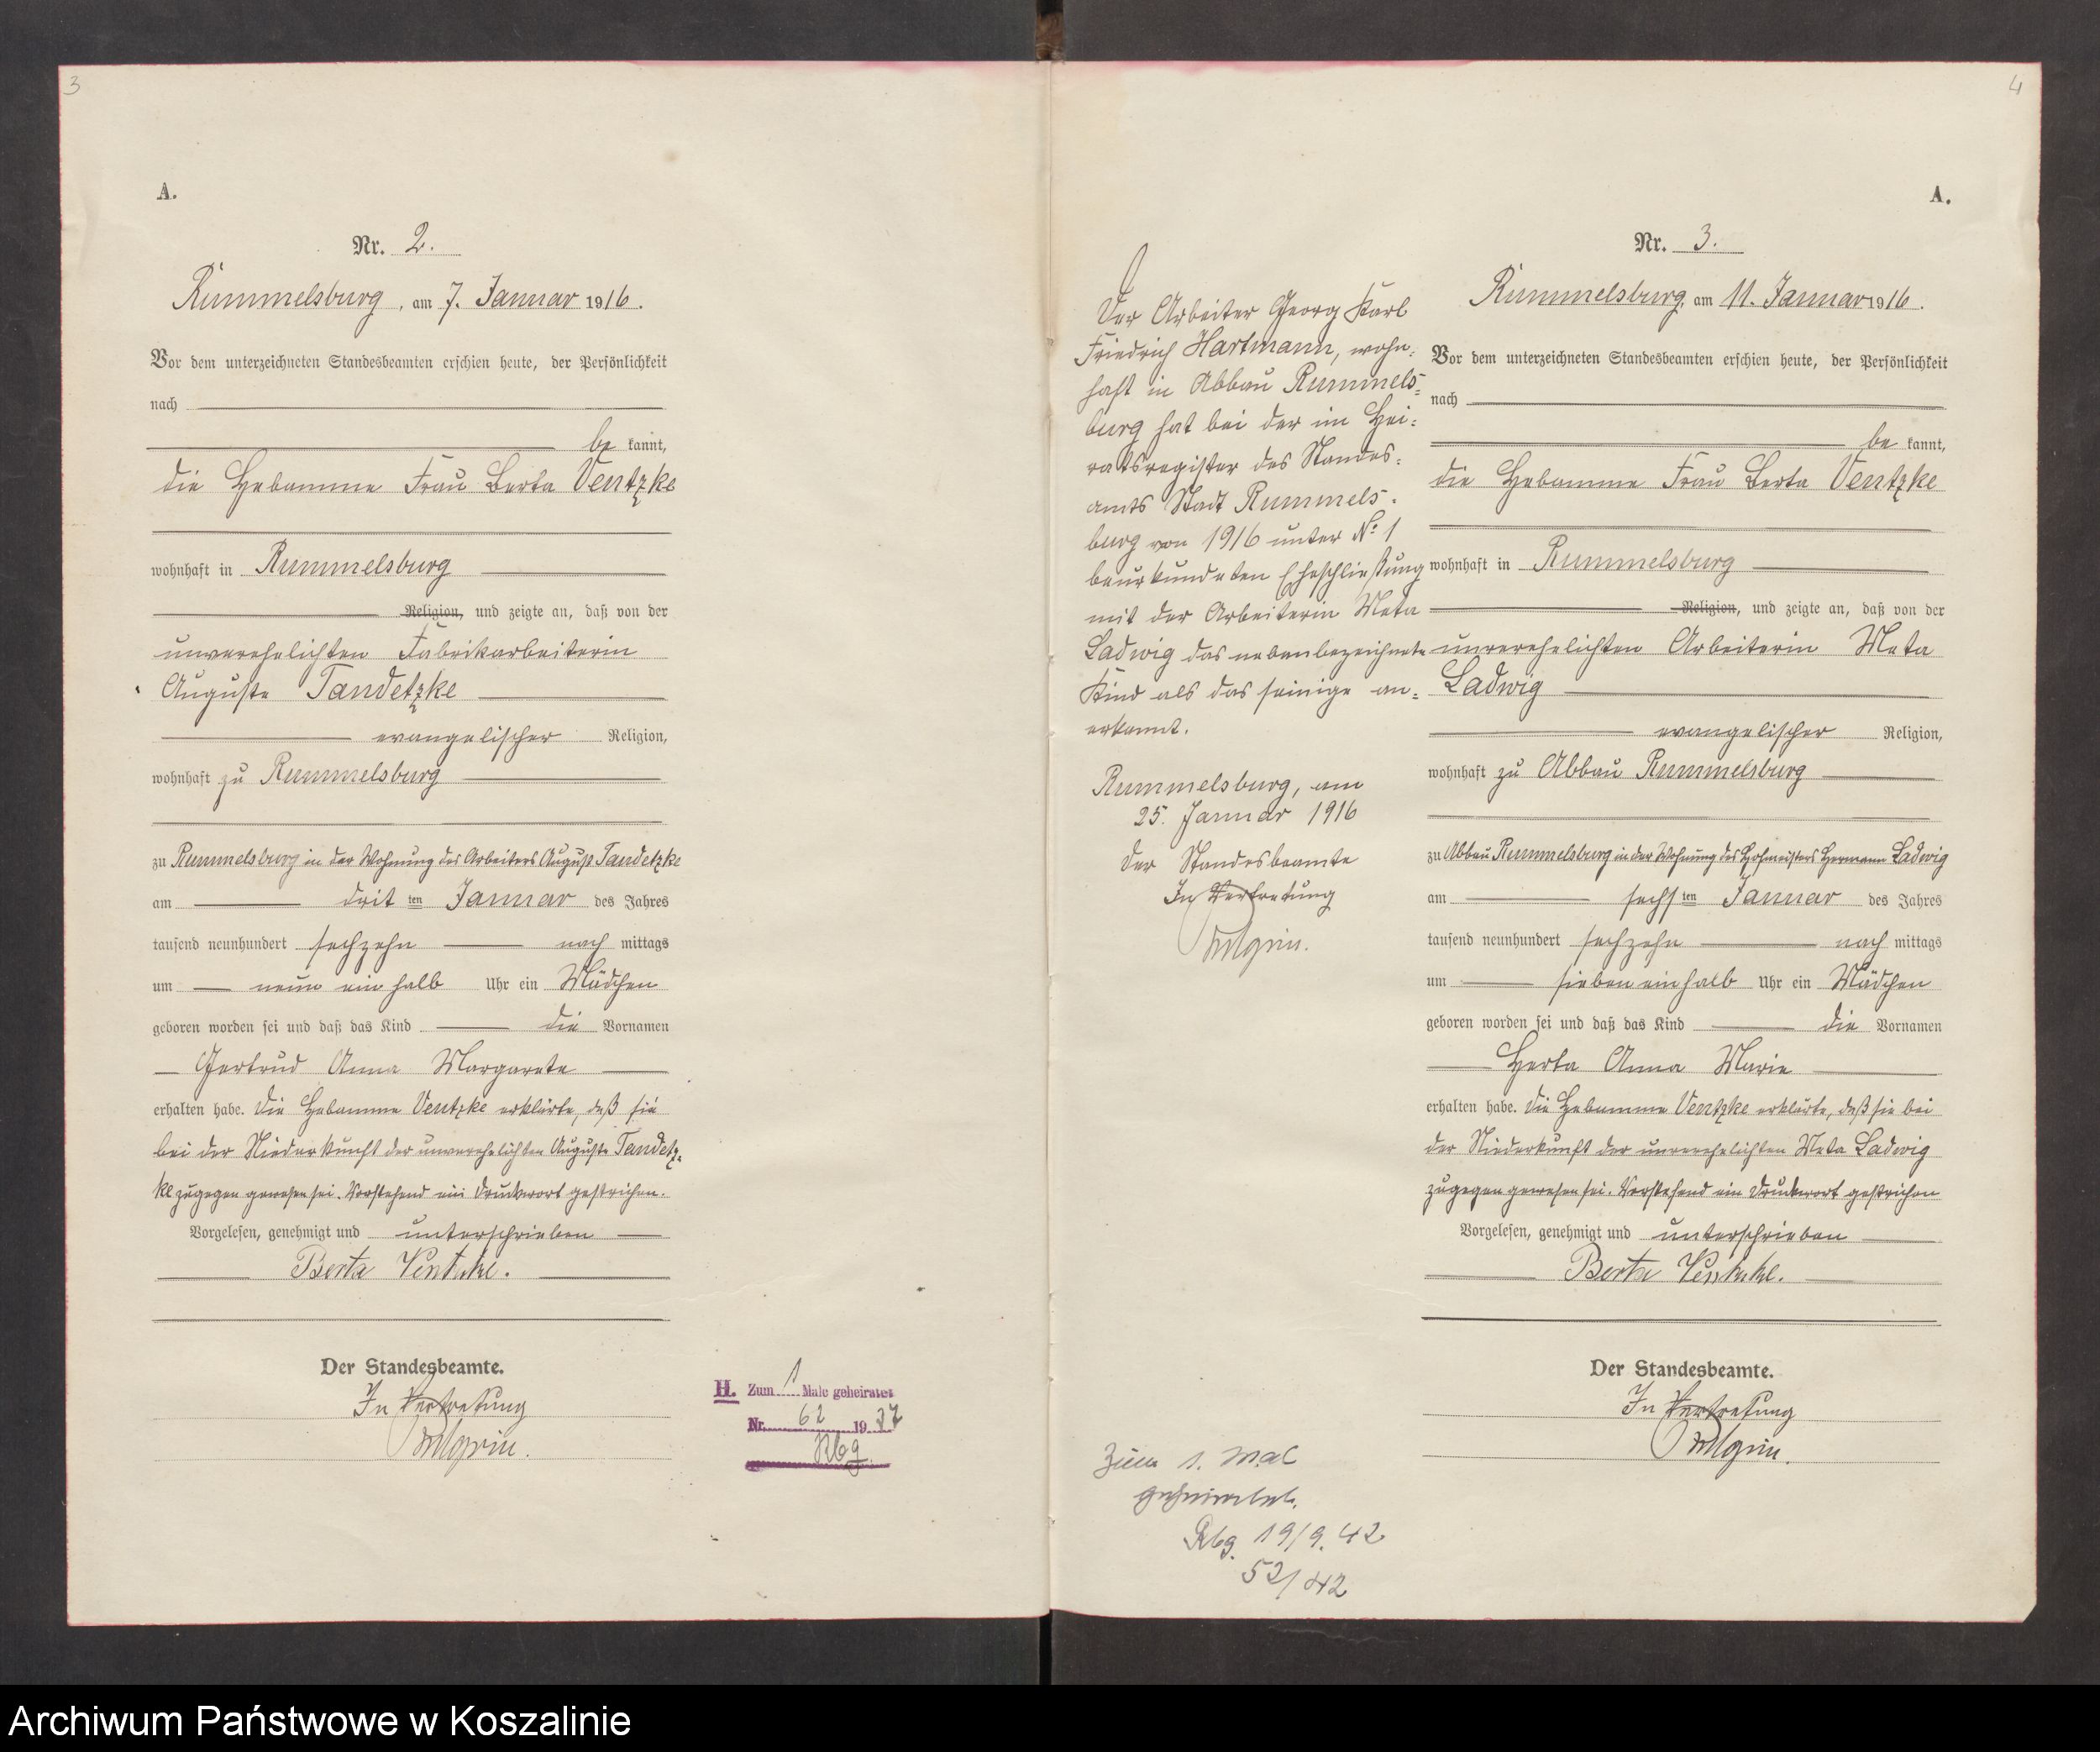 3
A.
Nr. 2.
Rummelsburg, am 7. Januar 1916.
Vor dem unterzeichneten Standesbeamten erschien heute, der Persönlichkeit
nach
be kannt,
die Hebamme Frau Berta Ventzke
wohnhaft in Rummelsburg
Religion, und zeigte an, daß von der
unverehelichten Fabrikarbeiterin
Auguste Tandetzke
evangelischer Religion,
wohnhaft zu Rummelsburg
zu Rummelsburg in der Wohnung des Arbeiters August Tandetzke
am drit ten Januar des Jahres
tausend neunhundert sechzehn nach mittags
um neun ein halb Uhr ein Mädchen
geboren worden sei und daß das Kind die Vornamen
Gertrud Anna Margarete
erhalten habe. Die Hebamme Ventzke erklärte, daß sie
bei der Niederkunft der unverehelichten Auguste Tandetz-
ke zugegen gewesen sei. Vorstehend ein Druckwort gestrichen.
Vorgelesen, genehmigt und unterschrieben
Berta Ventzke.
Der Standesbeamte.
In Vertretung
H. Zum 1 Male geheiratet
Nr. 62 1937
Rbg
4
A.
Nr. 3.
Rummelsburg, am 11. Januar 1916.
Vor dem unterzeichneten Standesbeamten erschien heute, der Persönlichkeit
nach
be kannt,
die Hebamme Frau Berta Ventzke
wohnhaft in Rummelsburg
Religion, und zeigte an, daß von der
unverehelichten Arbeiterin Meta
Ladwig
evangelischer Religion,
wohnhaft zu Abbau Rummelsburg
zu Abbau Rummelsburg in der Wohnung des Hofmeisters Hermann Ladwig
am sechs ten Januar des Jahres
tausend neunhundert sechzehn nach mittags
um sieben ein halb Uhr ein Mädchen
geboren worden sei und daß das Kind die Vornamen
Herta Anna Marie
erhalten habe. Die Hebamme Ventzke erklärte, daß sie bei
der Niederkunft der unverehelichten Meta Ladwig
zugegen gewesen sei. Vorstehend ein Druckwort gestrichen
Vorgelesen, genehmigt und unterschrieben
Berta Ventzke.
Der Standesbeamte.
In Vertretung
Der Arbeiter Georg Karl
Friedrich Hartmann, wohn-
haft in Abbau Rummels-
burg hat bei der im Hei-
ratsregister des Standes-
amts Stadt Rummels-
burg von 1916 unter No 1
beurkundeten Eheschließung
mit der Arbeiterin Meta
Ladwig das nebenbezeichnete
Kind als das seinige an-
erkannt.
Rummelsburg, am
25. Januar 1916
Der Standesbeamte
In Vertretung
Zum 1. Mal
geheiratet.
Rbg. 19/9. 42
53/42
Archiwum Państwowe w Koszalinie